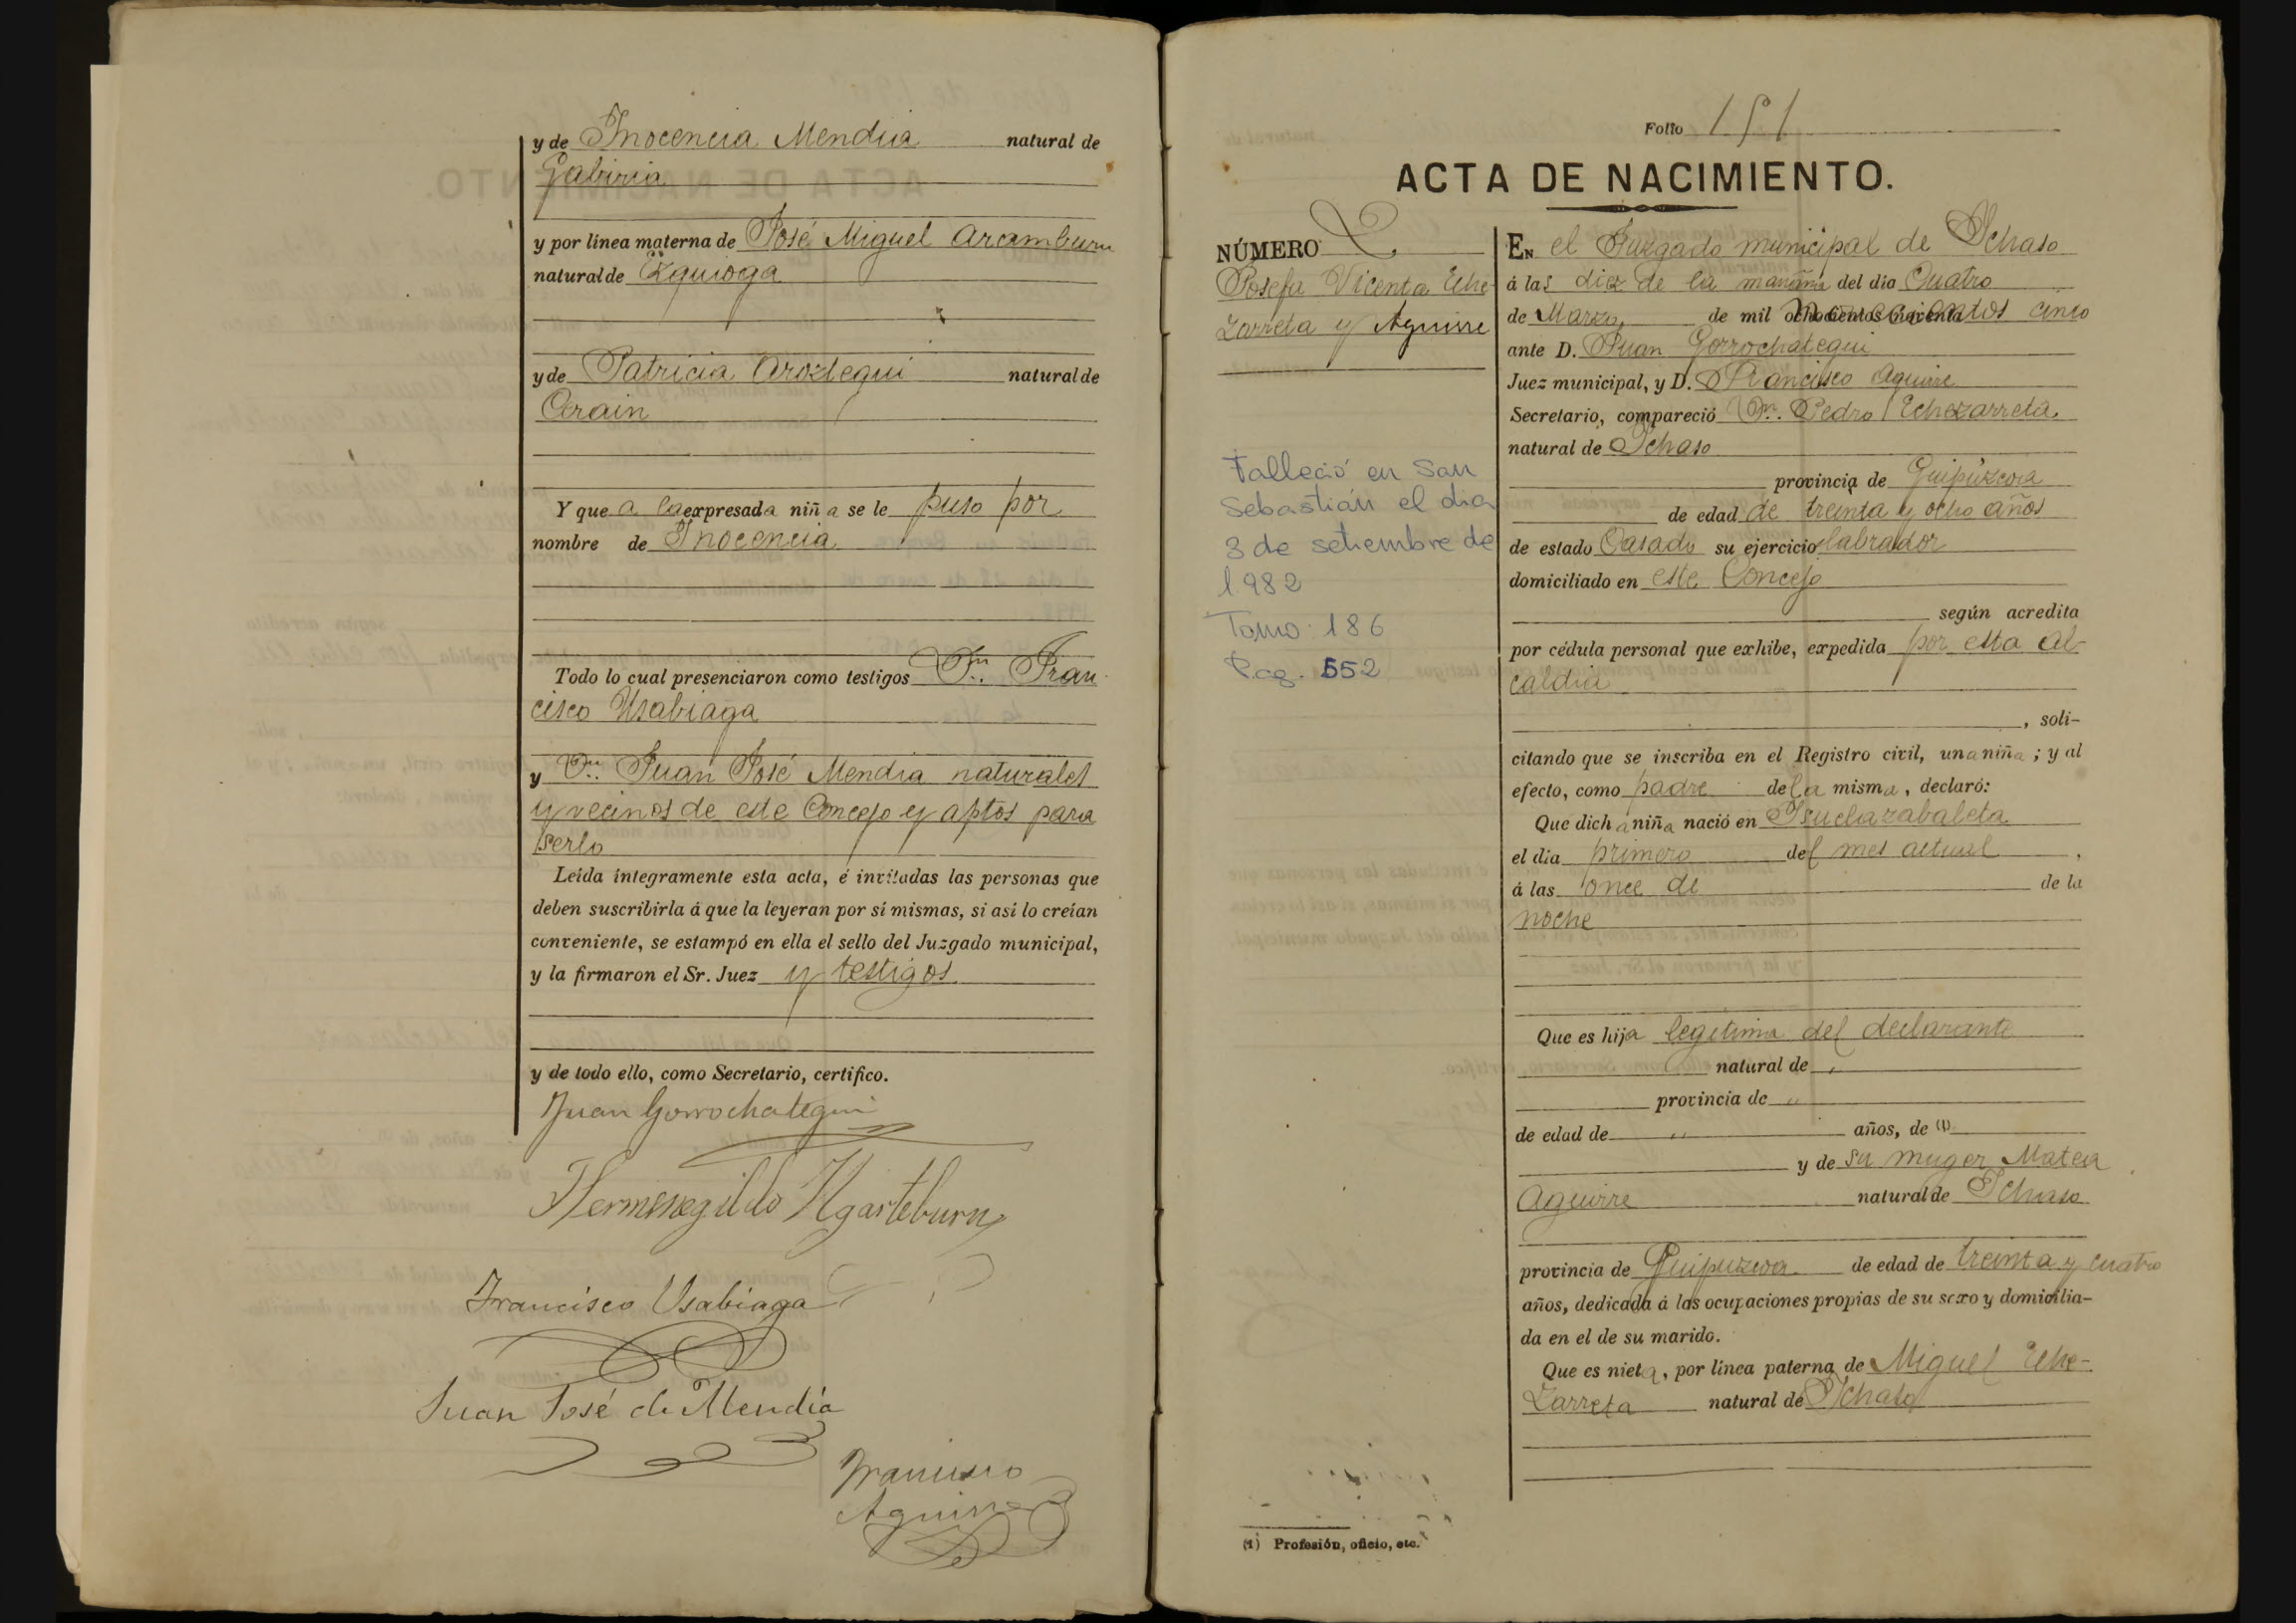 y de Inocencia Mendia natural de
Gabiria
y por línea materna de José Miguel Aramburu
natural de Ezquioga
y de Patricia Aroztegui natural de
Cerain
Y que a la expresada niña se le puso por
nombre de Inocencia
Todo lo cual presenciaron como testigos Dn. Fran
cisco Usabiaga
y Dn. Juan José Mendia naturales
y vecinos de este Concejo y aptos para
serlo
Leída íntegramente esta acta, é invitadas las personas que
deben suscribirla á que la leyeran por sí mismas, si así lo creían
conveniente, se estampó en ella el sello del Juzgado municipal,
y la firmaron el Sr. Juez y testigos
y de todo ello, como Secretario, certifico.
Juan Gorrochategui
Hermenegildo Ugarteburu
Francisco Usabiaga
Juan José de Mendía
Francisco
Aguirre
Folio 151
ACTA DE NACIMIENTO.
NÚMERO
Josefa Vicenta Eche
zarreta y Aguirre
Falleció en San
Sebastián el dia
3 de setiembre de
1.982
Tomo: 186
Pag. 552
En el Juzgado municipal de Ichaso
á las diez de la mañana del dia Cuatro
de Marzo de mil novecientos cinco
ante D. Juan Gorrochategui
Juez municipal, y D. Francisco Aguirre
Secretario, compareció Dn. Pedro Echezarreta
natural de Ichaso
provincia de Guipúzcoa
de edad de treinta y ocho años
de estado Casado su ejercicio labrador
domiciliado en este Concejo
según acredita
por cédula personal que exhibe, expedida por esta Al-
caldia
, soli-
citando que se inscriba en el Registro civil, una niña; y al
efecto, como padre de la misma, declaró:
Que dicha niña nació en
el dia primero del mes actual,
á las once de de la
noche
Que es hija legitima del declarante
natural de "
provincia de "
de edad de " años, de (1)
y de su muger Matea
Aguirre natural de Ichaso
provincia de Guipuzcoa de edad de treinta y cuatro
años, dedicada á las ocupaciones propias de su sexo y domicilia-
da en el de su marido.
Que es nieta, por línea paterna de Miguel Eche-
zarreta natural de Ichaso
(1) Profesión, oficio, etc.